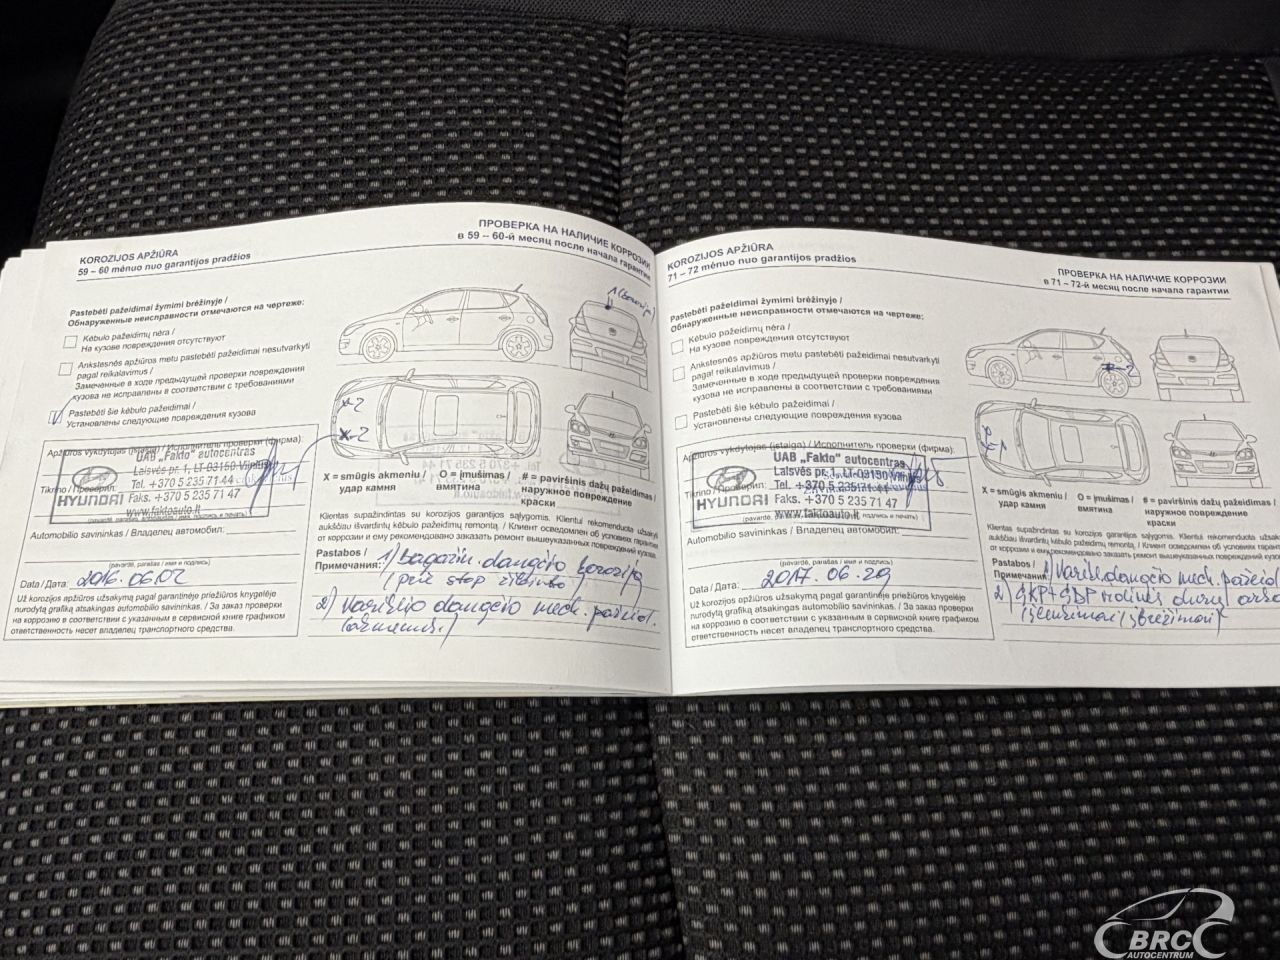 KOROZIJOS APŽIŪRA
59 – 60 mėnuo nuo garantijos pradžios
ПРОВЕРКА НА НАЛИЧИЕ КОРРОЗИИ
в 59 – 60-й месяц после начала гарантии
Pastebėti pažeidimai žymimi brėžinyje /
Обнаруженные неисправности отмечаются на чертеже:
Kėbulo pažeidimų nėra /
На кузове повреждения отсутствуют
Ankstesnės apžiūros metu pastebėti pažeidimai nesutvarkyti
pagal reikalavimus /
Замеченные в ходе предыдущей проверки повреждения
кузова не исправлены в соответствии с требованиями
Pastebėti šie kėbulo pažeidimai /
Установлены следующие повреждения кузова
x-2
x-2
Apžiūros vykdytojas (įstaiga) / Исполнитель проверки (фирма):
UAB „Fakto“ autocentras
Laisvės pr. 1, LT-03150 Vilnius
Tel. +370 5 235 71 44
Faks. +370 5 235 71 47
www.faktoauto.lt
HYUNDAI
Tikrino / Проверил:
(pavardė, parašas, antspaudas / имя, подпись и печать)
Automobilio savininkas / Владелец автомобил:
(pavardė, parašas / имя и подпись)
Data / Дата: 2016.06.02
Už korozijos apžiūros užsakymą pagal garantinėje priežiūros knygelėje
nurodytą grafiką atsakingas automobilio savininkas. / За заказ проверки
на коррозию в соответствии с указанным в сервисной книге графиком
ответственность несет владелец транспортного средства.
X = smūgis akmeniu / O = įmušimas / # = paviršinis dažų pažeidimas /
удар камня вмятина наружное повреждение
краски
Klientas supažindintas su korozijos garantijos sąlygomis. Klientui rekomenduota užsakyti
aukščiau išvardintų kėbulo pažeidimų remontą. / Клиент осведомлен об условиях гарантии
от коррозии и ему рекомендовано заказать ремонт вышеуказанных повреждений кузова.
Pastabos /
Примечания:
1) bagažin. dangčio korozija
(prie stop žibinto
2) Variklio dangčio mech. pažeid.
KOROZIJOS APŽIŪRA
71 – 72 mėnuo nuo garantijos pradžios
ПРОВЕРКА НА НАЛИЧИЕ КОРРОЗИИ
в 71 – 72-й месяц после начала гарантии
Pastebėti pažeidimai žymimi brėžinyje /
Обнаруженные неисправности отмечаются на чертеже:
Kėbulo pažeidimų nėra /
На кузове повреждения отсутствуют
Ankstesnės apžiūros metu pastebėti pažeidimai nesutvarkyti
pagal reikalavimus /
Замеченные в ходе предыдущей проверки повреждения
кузова не исправлены в соответствии с требованиями
Pastebėti šie kėbulo pažeidimai /
Установлены следующие повреждения кузова
Apžiūros vykdytojas (įstaiga) / Исполнитель проверки (фирма):
UAB „Fakto“ autocentras
Laisvės pr. 1, LT-03150 Vilnius
Tel. +370 5 235 71 44
Faks. +370 5 235 71 47
www.faktoauto.lt
HYUNDAI
Tikrino / Проверил:
Automobilio savininkas / Владелец автомобил:
(pavardė, parašas / имя и подпись)
Data / Дата: 2017.06.29
Už korozijos apžiūros užsakymą pagal garantinėje priežiūros knygelėje
nurodytą grafiką atsakingas automobilio savininkas. / За заказ проверки
на коррозию в соответствии с указанным в сервисной книге графиком
ответственность несет владелец транспортного средства.
X = smūgis akmeniu / O = įmušimas / # = paviršinis dažų pažeidimas /
удар камня вмятина наружное повреждение
краски
Klientas supažindintas su korozijos garantijos sąlygomis. Klientui rekomenduota
aukščiau išvardintų kėbulo pažeidimų remontą. / Клиент осведомлен об условиях
от коррозии и ему рекомендовано заказать ремонт вышеуказанных повреждений
Pastabos /
Примечания:
1) Varikl. dangčio mech. pažeid
2) GKP+GDP
BRC
AUTOCENTRUM